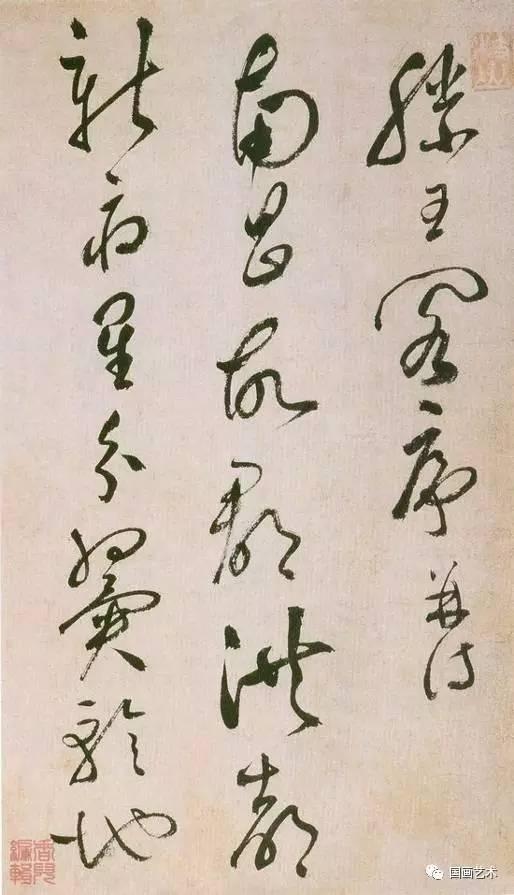 滕王閣序並詩
南昌故郡洪都
新府星分翼軫地
国画艺术